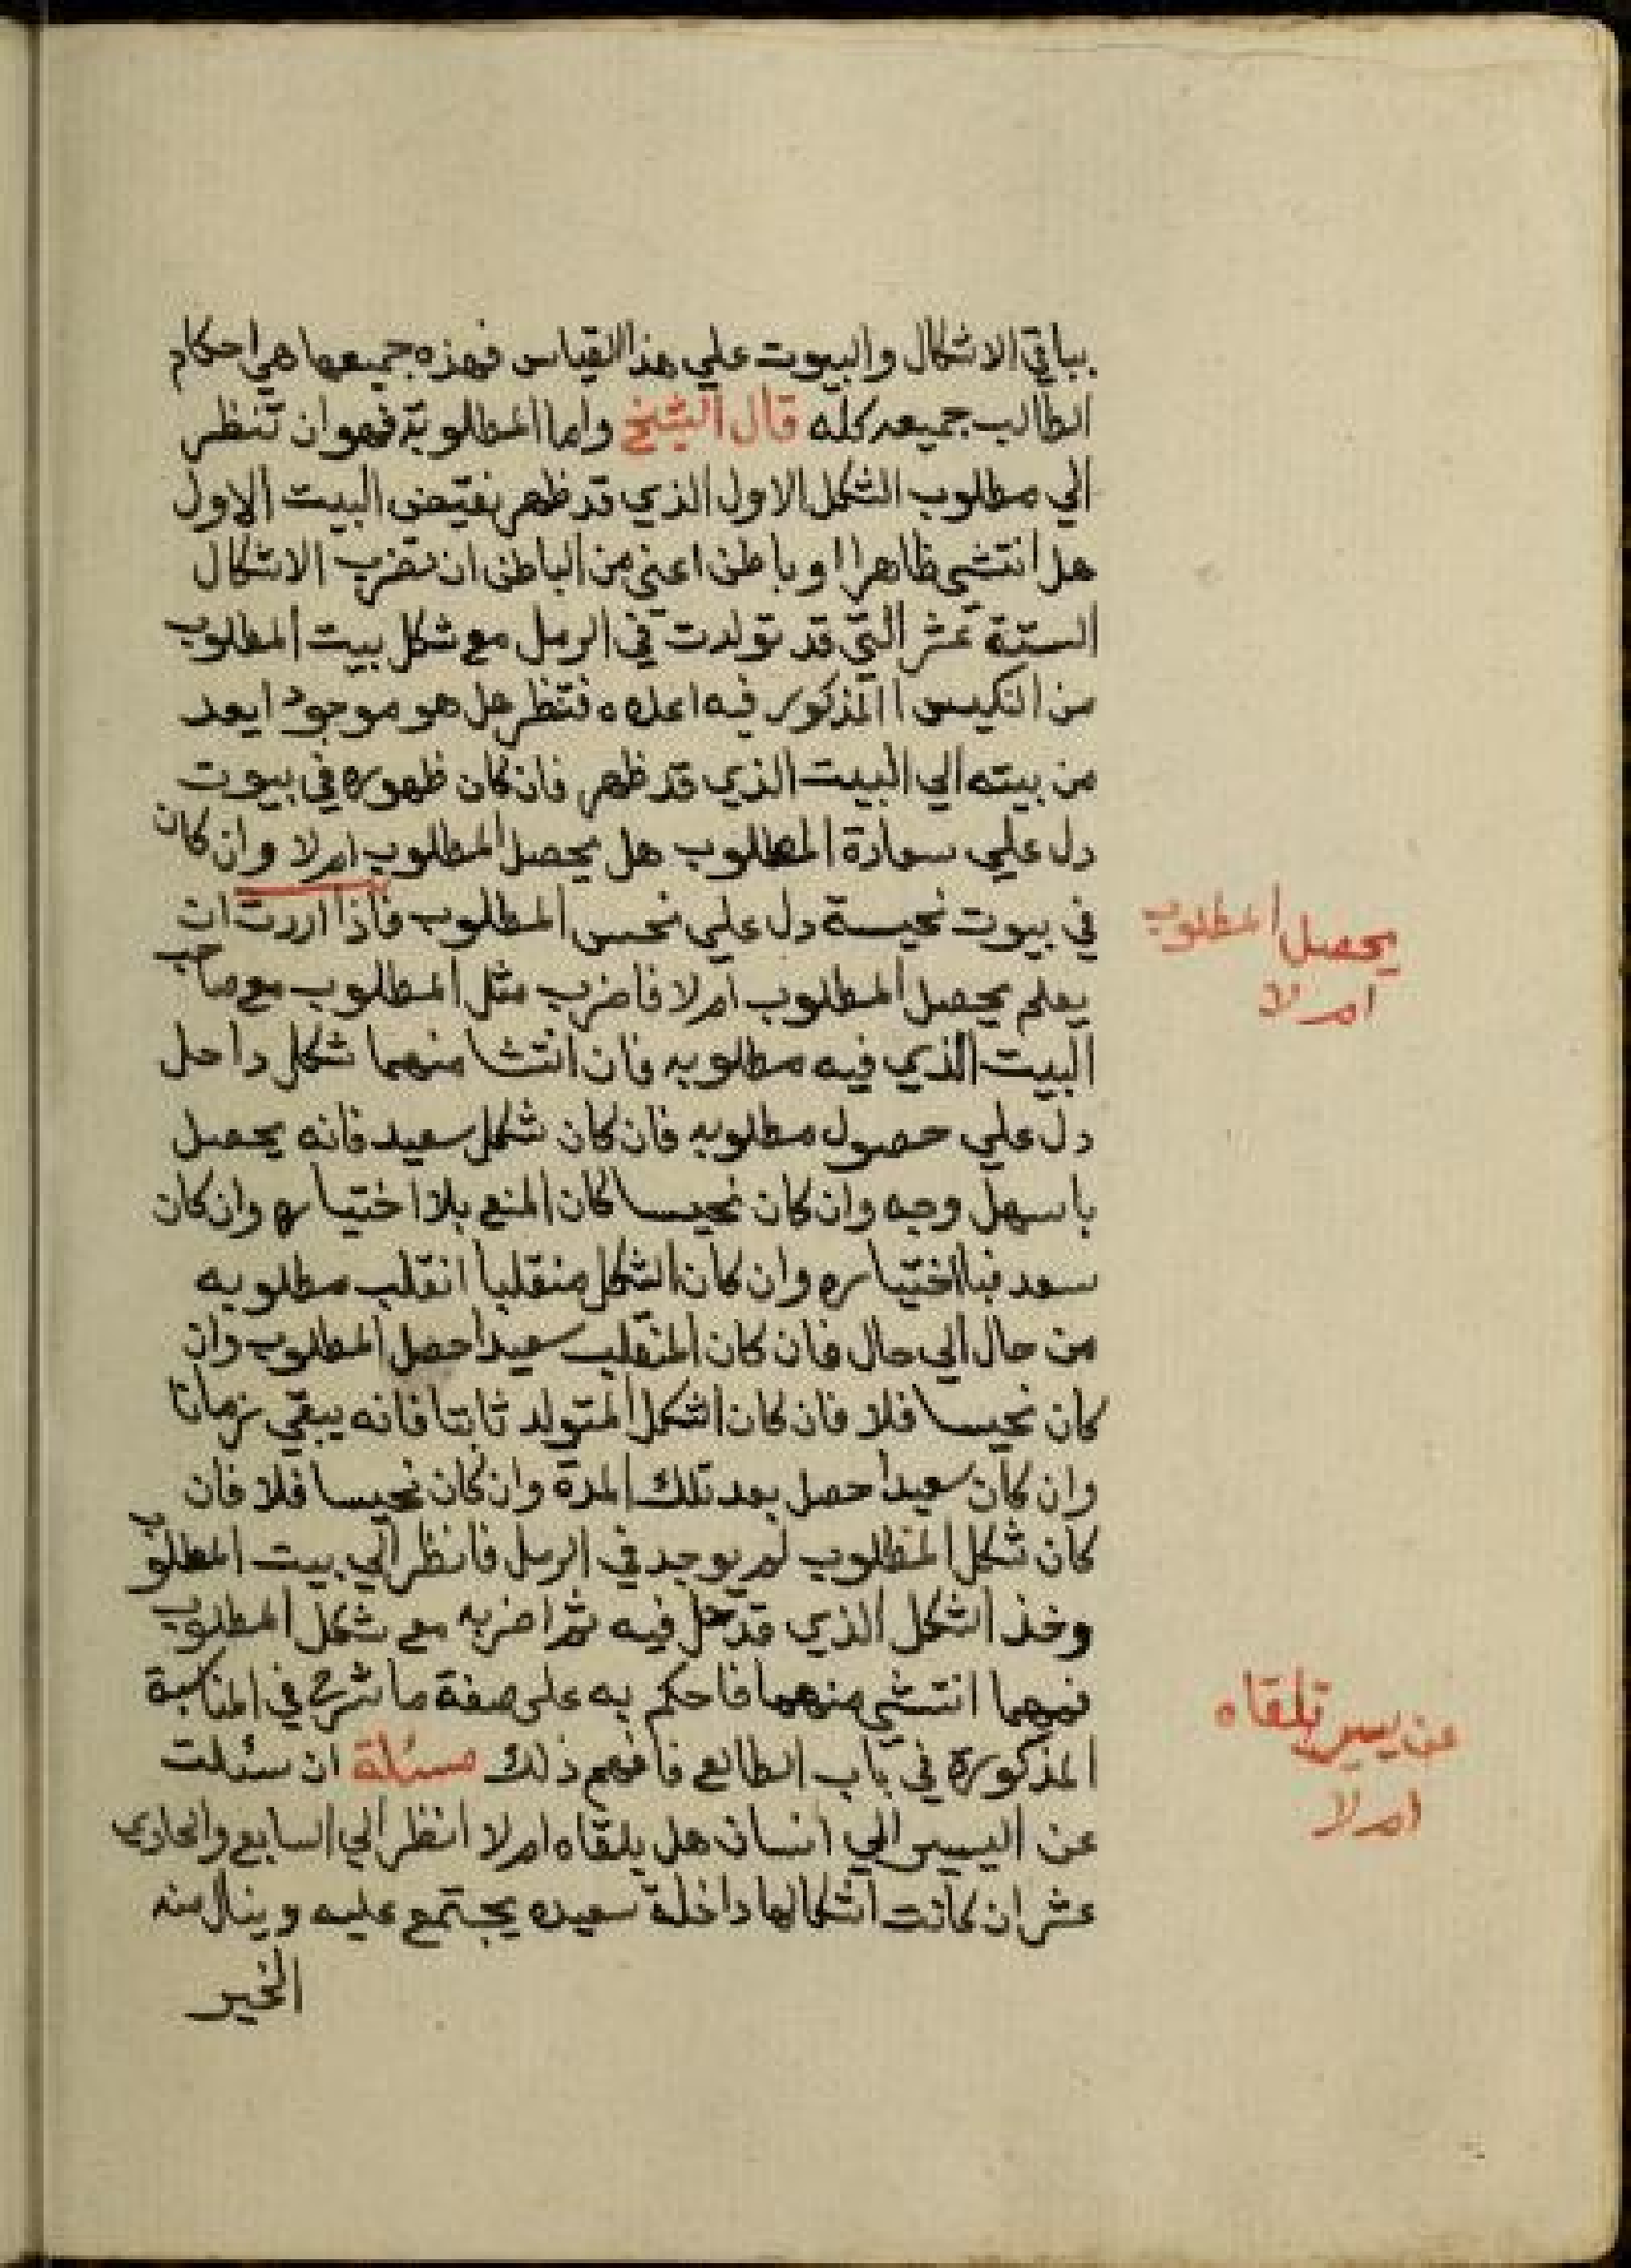 بباقي الاشكال والبيوت علي هذا القياس فهذه جميعها هي احكام
الطالب جميعه كله قال الشيخ واما المطلوبة فهو ان تنظر
الي مطلوب الشكل الاول الذي قد ظهر بفتيض البيت الاول
هل انتشي ظاهرا او باطن اعني من الباطن ان تضرب الاشكال
الستة عشر التي قد تولدت في الرمل مع شكل بيت المطلوب
من النكيس المذكور فيه اعلاه فتنظر هل هو موجود ايعد
من بيته الي البيت الذي قد ظهر فان كان ظهوره في بيوت
دل علي سعادة المطلوب هل يحصل المطلوب ام لا وان كان
في بيوت نحيسة دل علي نحس المطلوب فاذا اردت ان
يعلم يحصل المطلوب ام لا فاضرب مثل المطلوب مع صاحب
البيت الذي فيه مطلوبه فان انتشا منهما شكل داخل
دل علي حصول مطلوبه فان كان شكل سعيد فانه يحصل
باسهل وجه وان كان نحيسا كان المنع بلا اختياره وان كان
سعد فبا اختياره وان كان الشكل منقلبا انقلب مطلوبه
من حال الي حال فان كان المنقلب سعيدا حصل المطلوب وان
كان نحيسا فلا فان كان الشكل المتولد ثابتا فانه يبقي زمانا
وان كان سعيدا حصل بعد تلك المدة وان كان نحيسا فلا فان
كان شكل المطلوب لم يوجد في الرمل فانظر الي بيت المطلوب
وخذ الشكل الذي قد حل فيه ثم اضربه مع شكل المطلوب
فمهما انتشي منهما فاحكم به علي صفة ما شرح في المناسبة
المذكورة في باب الطالع فافهم ذلك مسئلة ان سئلت
عن اليسير الي انسان هل يلقاه ام لا انظر الي السابع والحادي
عشر ان كانت اشكالها داخلة سعيده يجتمع عليه وينال منه
الخير
يحصل المطلوب
ام لا
عن يسير تلقاه
ام لا